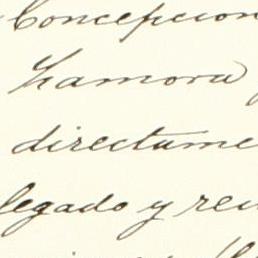 Concepcion
Zamora y
directame
legado y rec